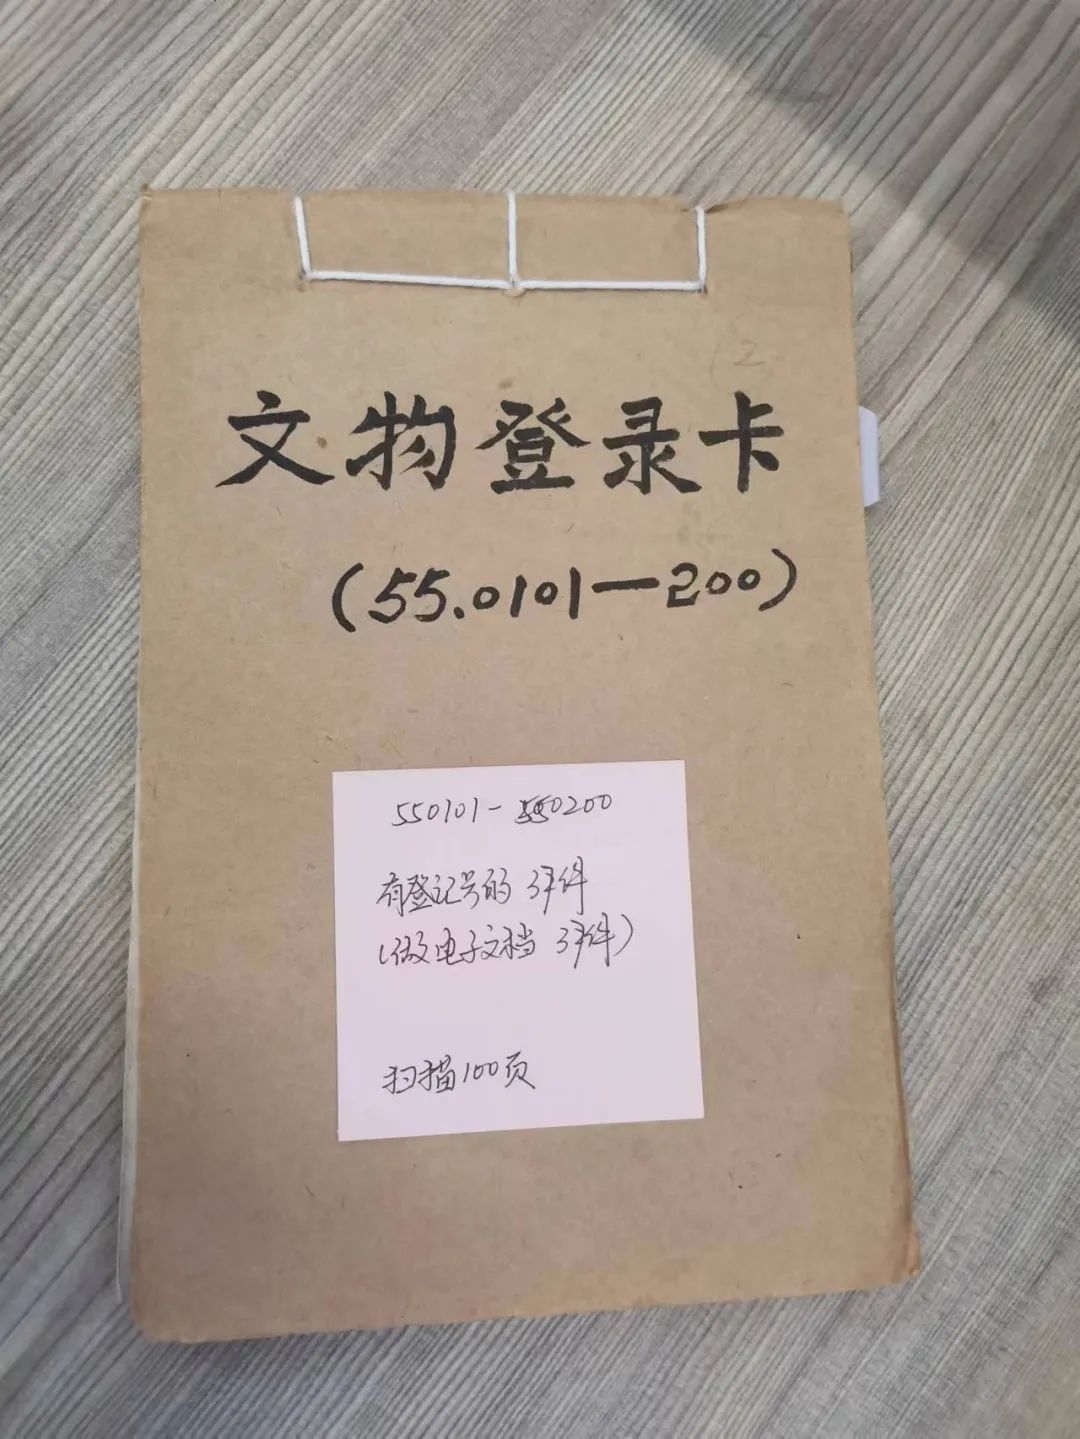 文物登录卡
(55.0101—200)
550101-550200
有登记号的 3件
(做电子文档 3件)
扫描100页